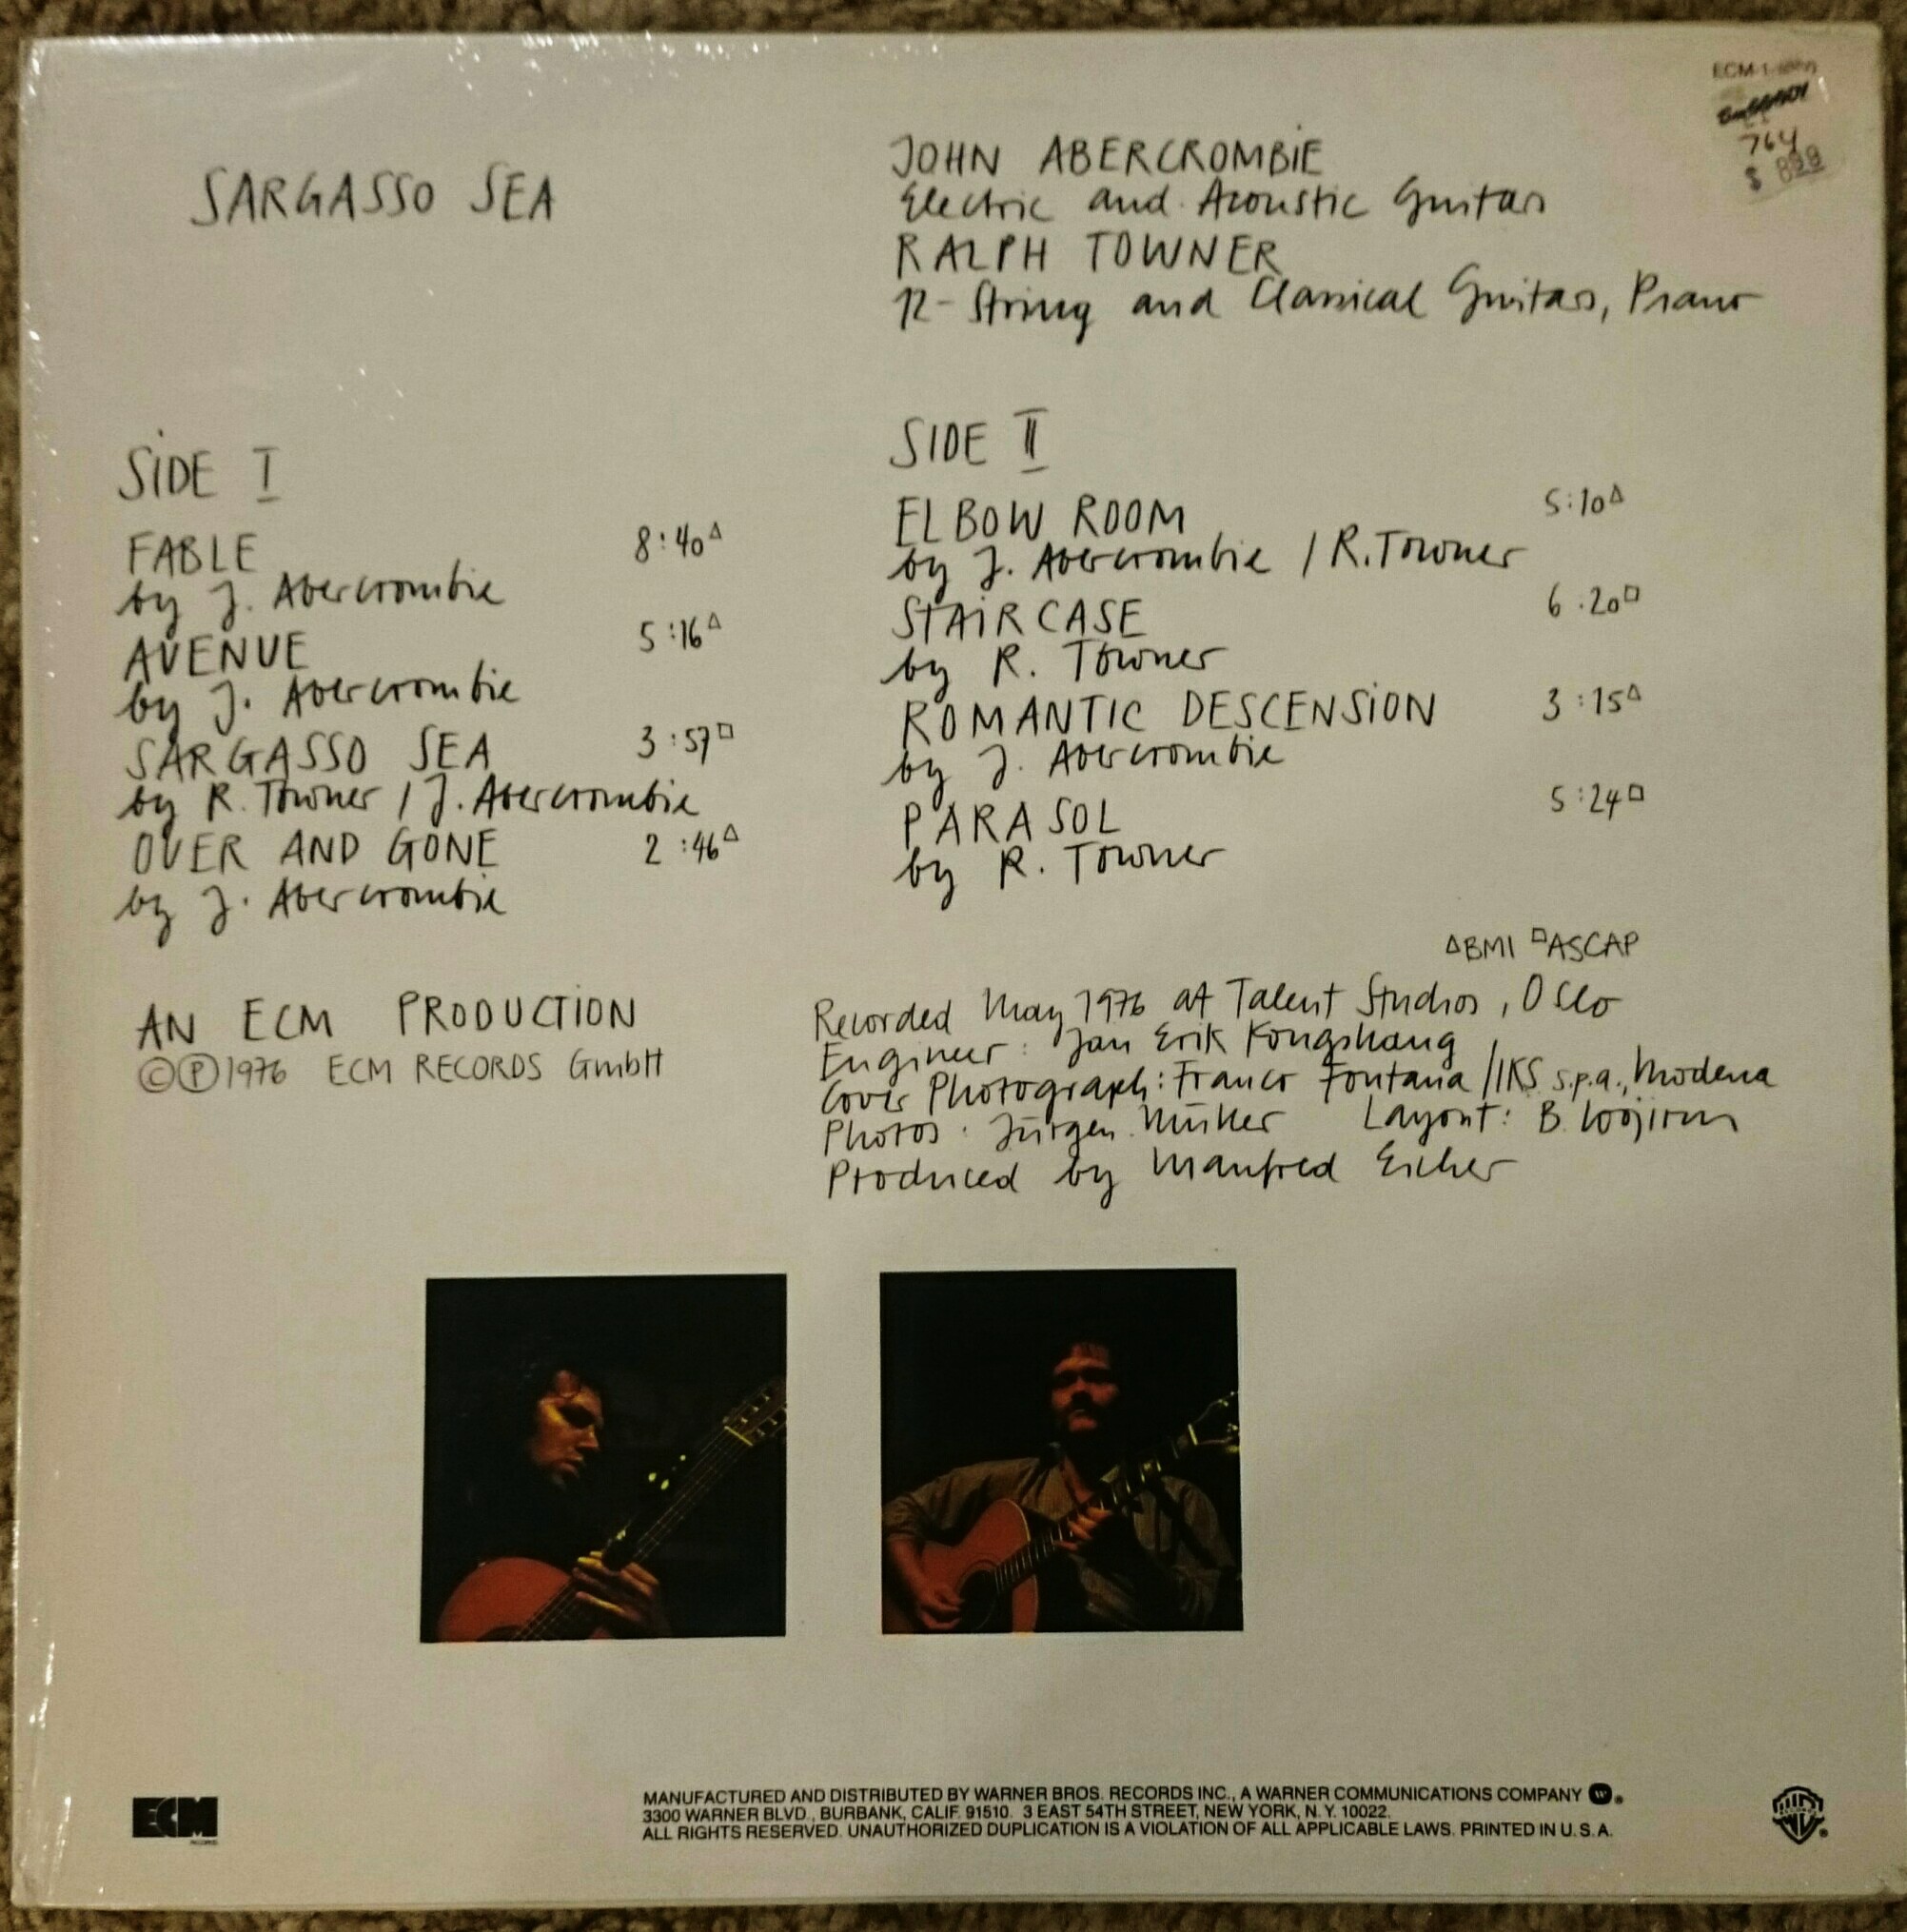 SARGASSO SEA
JOHN ABERCROMBIE
Electric and Acoustic Guitars
RALPH TOWNER
12-String and Classical Guitars, Piano
764
SIDE I
FABLE 8:40△
by J. Abercrombie
AVENUE 5:16△
by J. Abercrombie
SARGASSO SEA 3:57□
by R. Towner / J. Abercrombie
OVER AND GONE 2:46△
by J. Abercrombie
SIDE II
ELBOW ROOM 5:10△
by J. Abercrombie / R. Towner
STAIRCASE 6:20□
by R. Towner
ROMANTIC DESCENSION 3:15△
by J. Abercrombie
PARASOL 5:24□
by R. Towner
△BMI □ASCAP
AN ECM PRODUCTION
©℗1976 ECM RECORDS GmbH
Recorded May 1976 at Talent Studios, Oslo
Engineer: Jan Erik Kongshaug
Cover Photograph: Franco Fontana /IKS s.p.a., Modena
Photos: Jürgen Layout: B. Wojirsch
Produced by Manfred Eicher
ECM
RECORDS
MANUFACTURED AND DISTRIBUTED BY WARNER BROS. RECORDS INC., A WARNER COMMUNICATIONS COMPANY
3300 WARNER BLVD., BURBANK, CALIF. 91510. 3 EAST 54TH STREET, NEW YORK, N.Y. 10022.
ALL RIGHTS RESERVED. UNAUTHORIZED DUPLICATION IS A VIOLATION OF ALL APPLICABLE LAWS. PRINTED IN U.S.A.